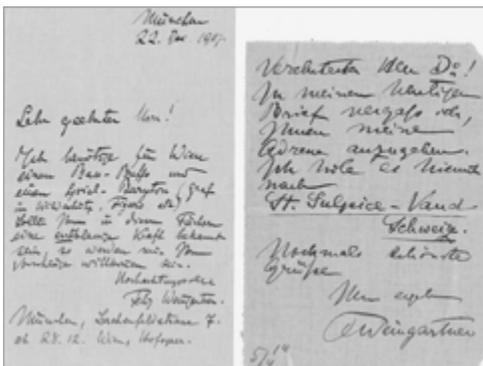 München
22. Dez. 1907.
Sehr geehrter Herr!
Ich benötige für Wien
einen Bass-Buffo und
einen Spiel-Baryton (Graf
in Wildschütz, Figaro etc)
Sollte Ihnen in diesen Fächern
eine erstklassige Kraft bekannt
sein, so werden mir Ihre
Vorschläge willkommen sein.
Hochachtungsvoll
Felix Weingartner.
München, 7.
ab 28.12. Wien, Hofoper.
Verehrtester Herr Dr!
In meinem heutigen
Brief vergass ich,
Ihnen meine
Adresse anzugeben.
Ich hole es hiemit
nach
St. Sulpice - Vaud
Schweiz.
Nochmals schönste
Grüße
Ihr ergeb
FWeingartner
5/4 14